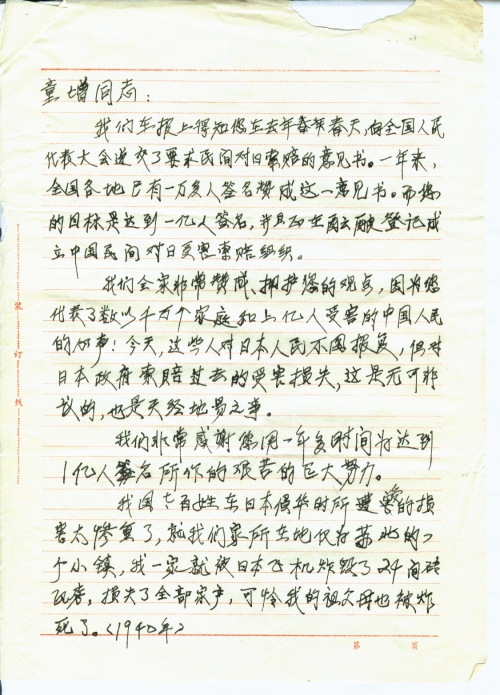 童增同志：
我们在报上得知您在去年春天，向全国人民
代表大会递交了要求民间对日索赔的意见书。一年来，
全国各地已有一万多人签名赞成这一意见书。而您
的目标是达到一亿人签名，并且正在酝酿登记成
立中国民间对日受害索赔组织。
我们全家非常赞成、拥护您的观点，因为您
代表了数以千万个家庭和上亿人受害的中国人民
的心声！今天，这些人对日本人民不图报复，但对
日本政府索赔过去的受害损失，这是无可非
议的，也是天经地义之事。
我们非常感谢您用一年多时间为达到
1亿人签名所作的艰苦的巨大努力。
我国老百姓在日本侵华时所遭受的损
害太惨重了，就我们家所在地仅为苏北的一
个小镇，我一家就被日本飞机炸毁了24间砖
瓦房，损失了全部家产，可怜我的祖父母也被炸
死了。（1940年）
装
订
线
第 页